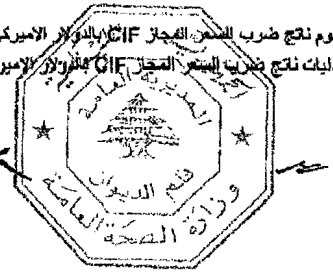 وم ناتج ضرب السعر المجاز CIF بالدولار الاميركي
ليات ناتج ضرب السعر المجاز CIF بالدولار الاميركي
المديرية العامة
قلم الديوان
وزارة الصحة العامة